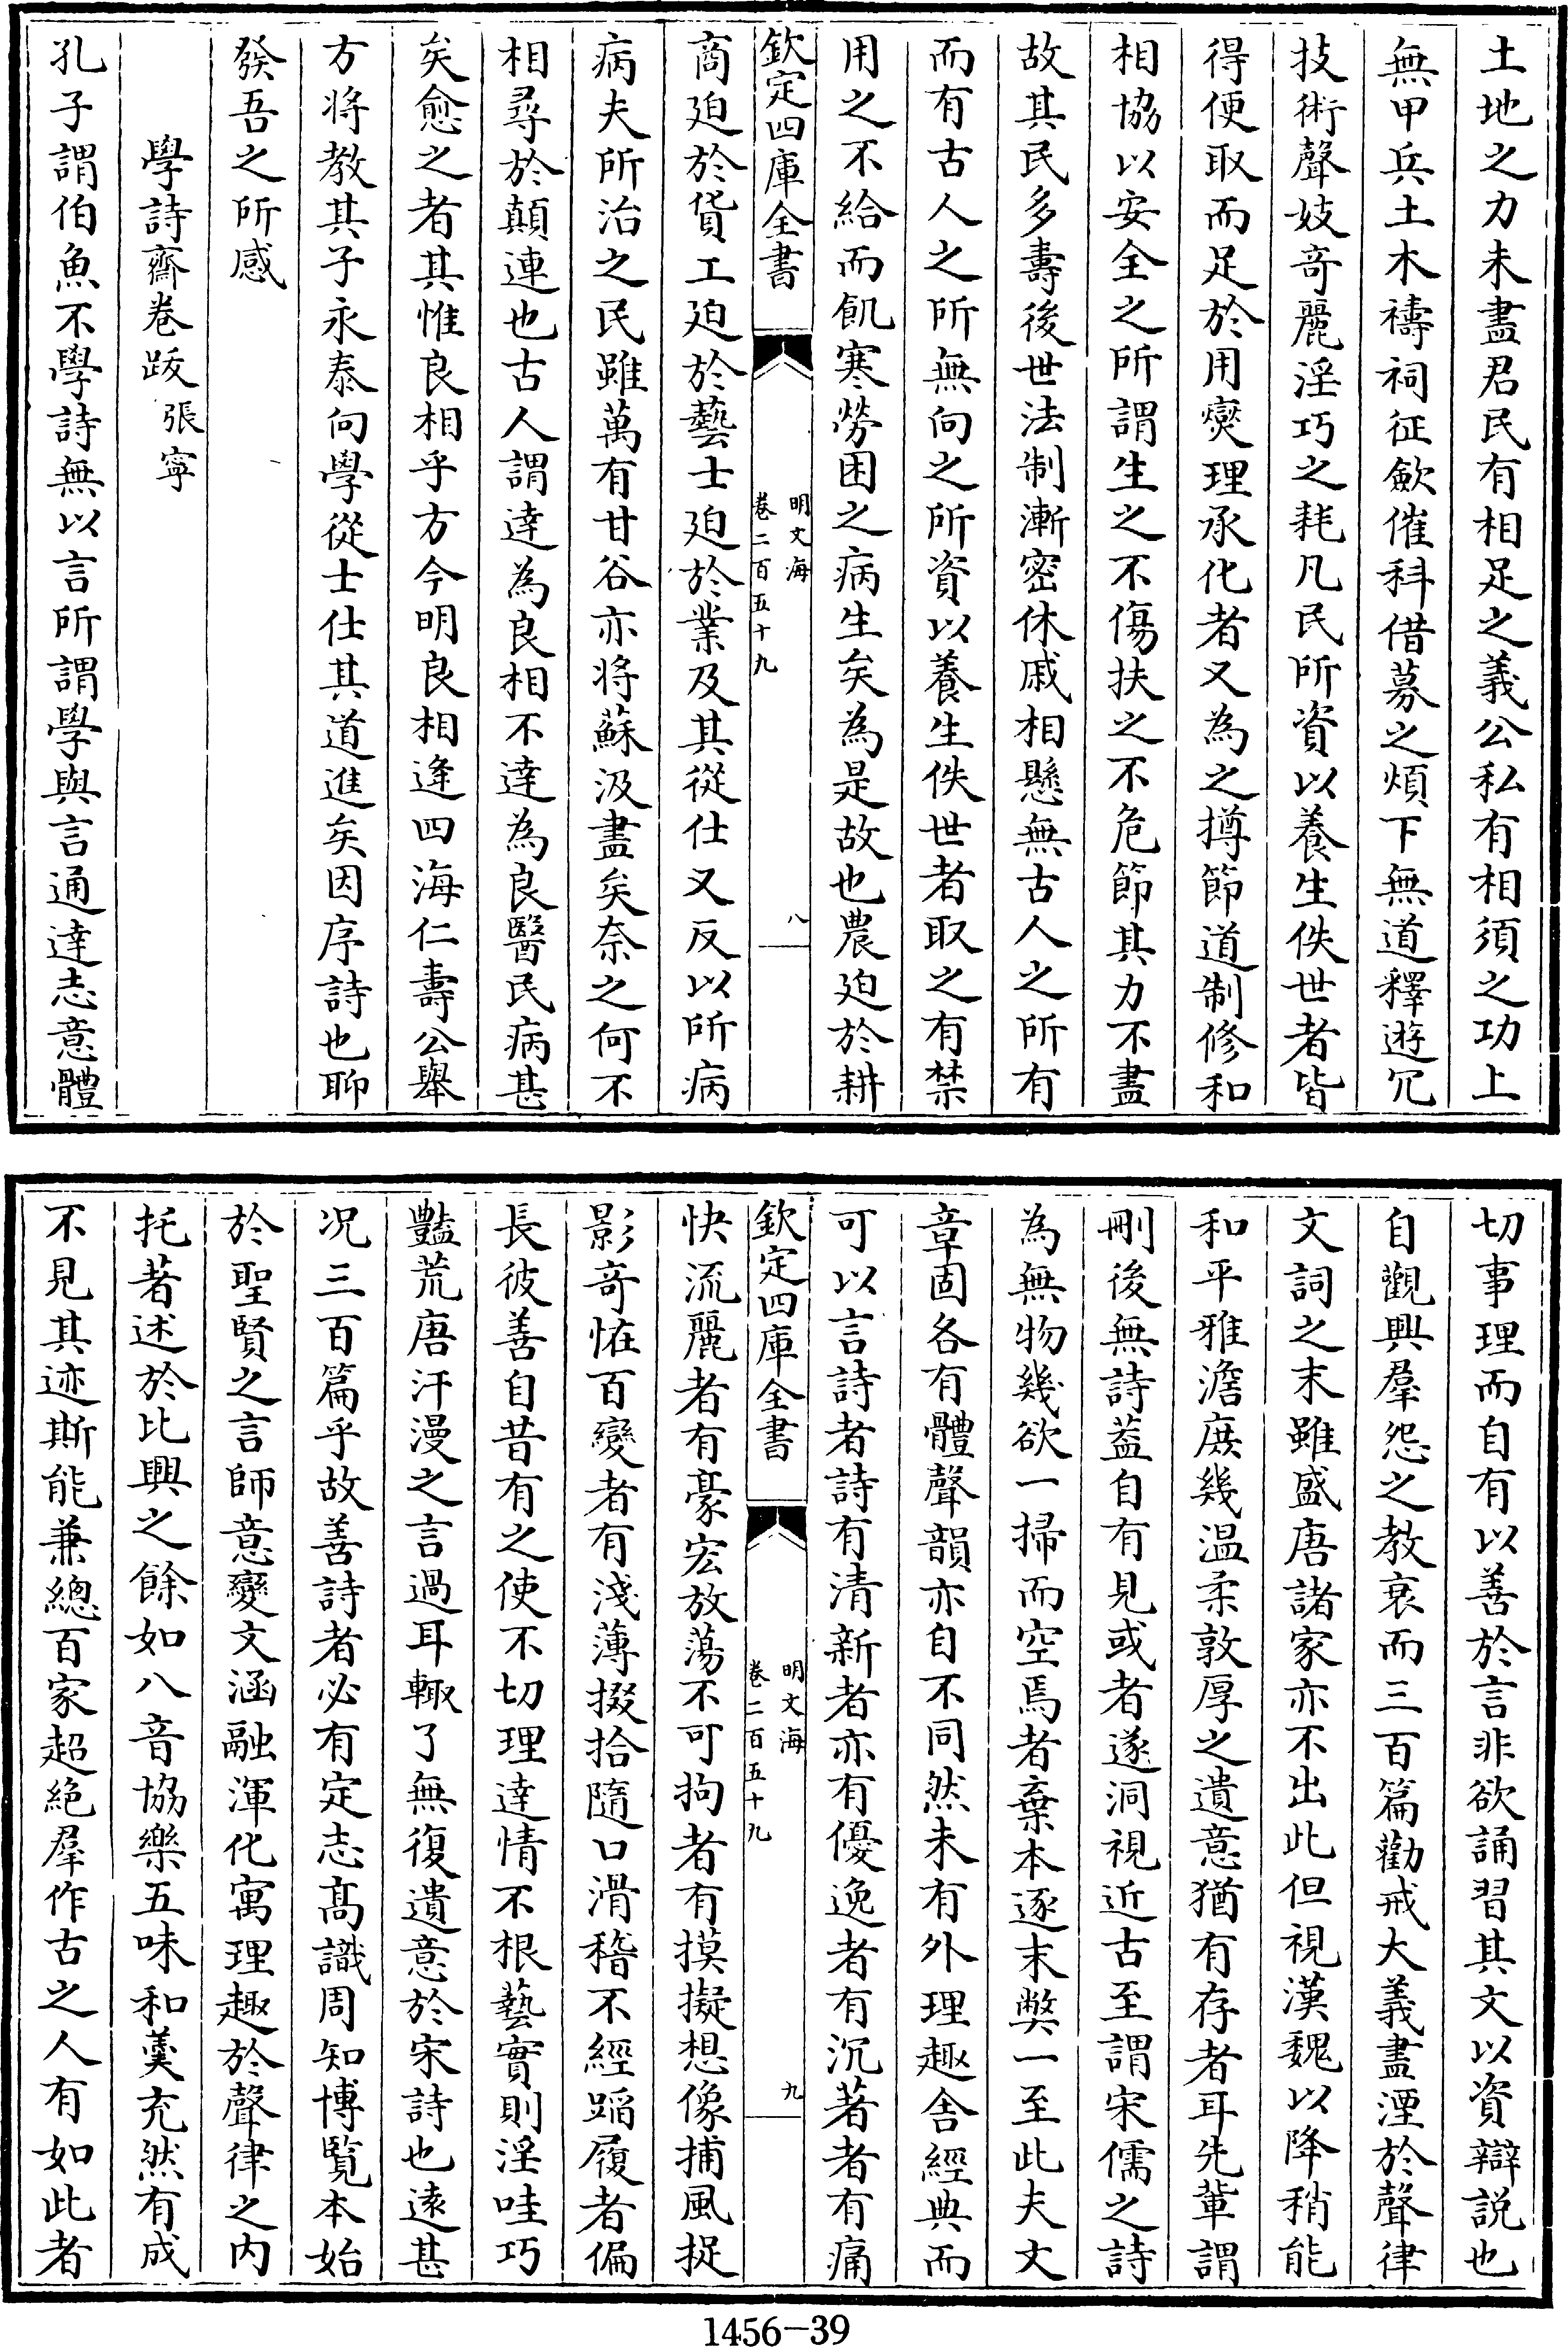 土地之力未盡君民有相足之義公私有相須之功上
無甲兵土木禱祠征歛催科借募之煩下無道釋遊冗
技術聲妓奇麗淫巧之耗凡民所資以養生佚世者皆
得便取而足於用爕理承化者又為之撙節道制修和
相協以安全之所謂生之不傷扶之不危節其力不盡
故其民多壽後世法制漸密休戚相懸無古人之所有
而有古人之所無向之所資以養生佚世者取之有禁
用之不給而飢寒勞困之病生矣為是故也農廹於耕
欽定四庫全書
明文海
卷二百五十九
八
商廹於貨工廹於藝士廹於業及其從仕又反以所病
病夫所治之民雖萬有甘谷亦將蘇汲盡矣奈之何不
相尋於顛連也古人謂達為良相不達為良醫民病甚
矣愈之者其惟良相乎方今明良相逢四海仁壽公舉
方將教其子永泰向學從士仕其道進矣因序詩也聊
發吾之所感
學詩齋卷跋 張寧
孔子謂伯魚不學詩無以言所謂學與言通達志意體
切事理而自有以善於言非欲誦習其文以資辯說也
自觀興羣怨之教衰而三百篇勸戒大義盡湮於聲律
文詞之末雖盛唐諸家亦不出此但視漢魏以降稍能
和平雅澹庶幾温柔敦厚之遺意猶有存者耳先輩謂
刪後無詩葢自有見或者遂洞視近古至謂宋儒之詩
為無物幾欲一掃而空焉者棄本逐末獘一至此夫文
章固各有體聲韻亦自不同然未有外理趣舍經典而
可以言詩者詩有清新者亦有優逸者有沉著者有痛
欽定四庫全書
明文海
卷二百五十九
九
快流麗者有豪宏放蕩不可拘者有摸擬想像捕風捉
影奇恠百變者有淺薄掇拾隨口滑稽不經蹈履者偏
長彼善自昔有之使不切理達情不根藝實則淫哇巧
豔荒唐汗漫之言過耳輙了無復遺意於宋詩也遠甚
况三百篇乎故善詩者必有定志高識周知博覽本始
於聖賢之言師意變文涵融渾化寓理趣於聲律之内
托著述於比興之餘如八音協樂五味和羮充然有成
不見其迹斯能兼總百家超絶羣作古之人有如此者
1456-39